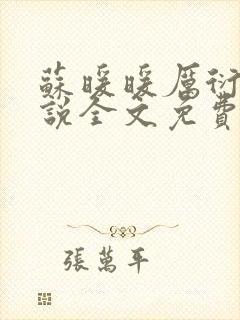 蘇暖暖厲衍
說全文免費
張萬年